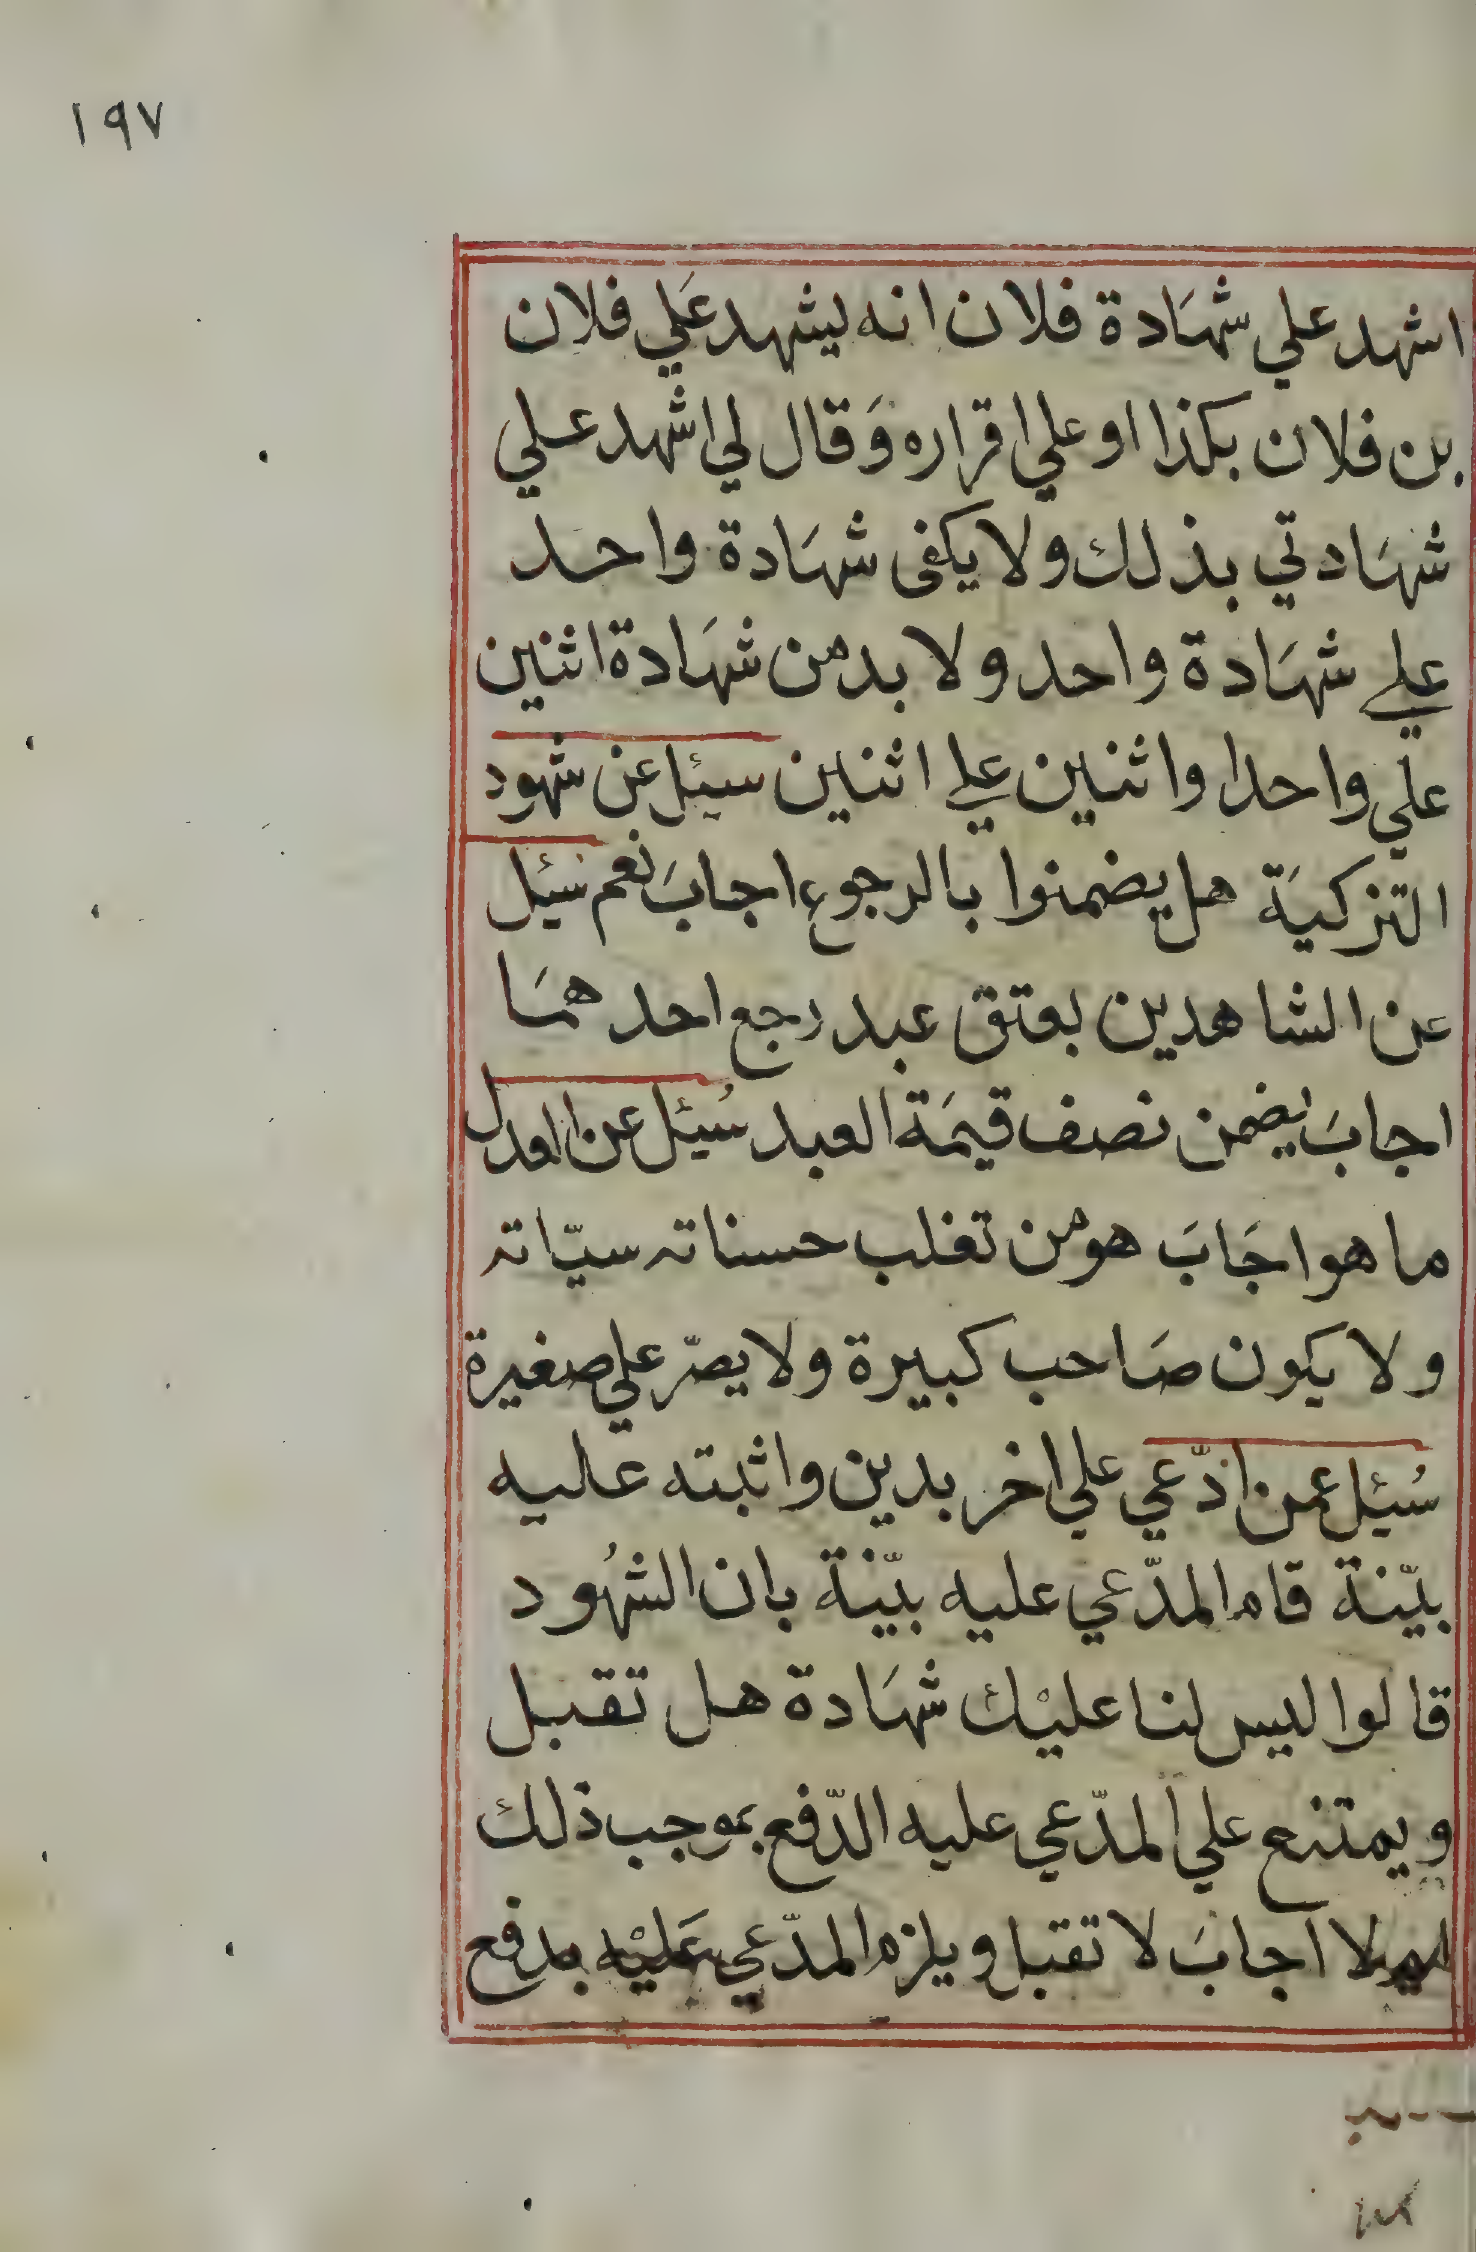 ١٩٧
اشهد علي شهَادة فلان انه يشهد عَلي فلان
بن فلان بكذا او علي اقراره وَقال لي اشهد علي
شهَادتي بذلك ولا يكفى شهَادة واحد
علي شهَادة واحد ولا بد من شهَادة اثنين
علي واحد واثنين علي اثنين سيئل عن شهود
التزكيَة هل يضمنوا بالرجوع اجابَ نعم سيئل
عن الشاهدين بعتق عبد رجع احدهمَا
اجابَ يضمن نصف قيمَة العبد سُيئل عن العدل
ما هو اجَابَ هو من تغلب حسناته سيّاته
ولا يكون صَاحب كبيرة ولا يصرّ علي صغيرة
سُيئل عمن ادّعي علي اخر بدين واثبته عليه
بيّنة قام المدّعي عليه بيّنة بان الشهُود
قالوا ليس لنا عليْك شهَادة هل تقبل
ويمتنع علي المدّعي عليه الدّفع بموجب ذلك
ام لا اجابَ لا تقبل ويلزم المدّعي عَليْه بدفع